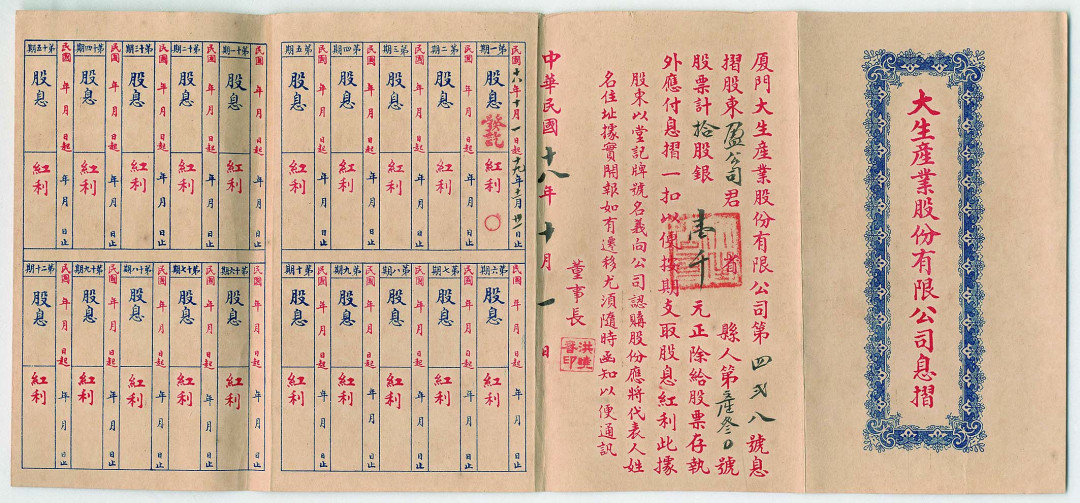 大生產業股份有限公司息摺
廈門大生產業股份有限公司第四弍八號息
摺股東盈公司君 省 縣人第產叁0號
股票計拾股銀壹千元正除給股票存執
外應付息摺一扣以便按期支取股息紅利此據
股東以堂記牌號名義向公司認購股份應將代表人姓
名住址據實開報如有遷移尤須隨時函知以便通訊
董事長
洪曉春印
中華民國十八年十月一日
第一期
民國十八年十月一日起十九年十二月 日止
股息
發訖
紅利
第二期
民國 年 月 日起 年 月 日止
股息
紅利
第三期
民國 年 月 日起 年 月 日止
股息
紅利
第四期
民國 年 月 日起 年 月 日止
股息
紅利
第五期
民國 年 月 日起 年 月 日止
股息
紅利
第六期
民國 年 月 日起 年 月 日止
股息
紅利
第七期
民國 年 月 日起 年 月 日止
股息
紅利
第八期
民國 年 月 日起 年 月 日止
股息
紅利
第九期
民國 年 月 日起 年 月 日止
股息
紅利
第十期
民國 年 月 日起 年 月 日止
股息
紅利
第十一期
民國 年 月 日起 年 月 日止
股息
紅利
第十二期
民國 年 月 日起 年 月 日止
股息
紅利
第十三期
民國 年 月 日起 年 月 日止
股息
紅利
第十四期
民國 年 月 日起 年 月 日止
股息
紅利
第十五期
民國 年 月 日起 年 月 日止
股息
紅利
第十六期
民國 年 月 日起 年 月 日止
股息
紅利
第十七期
民國 年 月 日起 年 月 日止
股息
紅利
第十八期
民國 年 月 日起 年 月 日止
股息
紅利
第十九期
民國 年 月 日起 年 月 日止
股息
紅利
第二十期
民國 年 月 日起 年 月 日止
股息
紅利